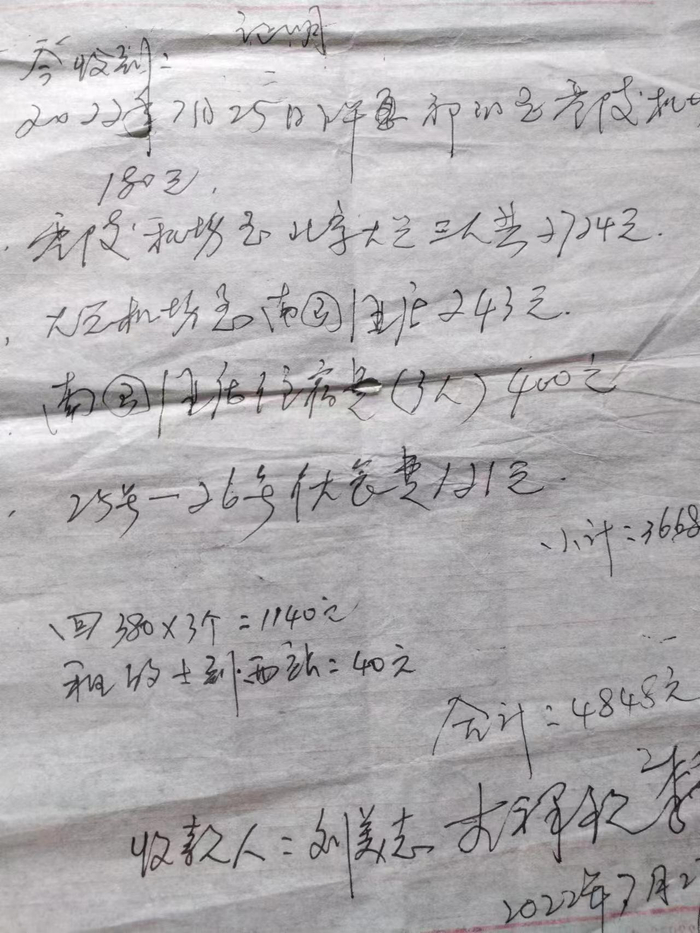 证明
今收到：
2022年7月25日 至 机
180元.
机场至北京大兴三人共2724元.
大兴机场至南国酒店243元.
南国酒店住宿是(3人) 400元
25号—26号伙食费121元.
小计：3668
回380×3个=1140元
租的士到西站=40元
合计：4848元
收款人：刘美志 李
2022年7月2